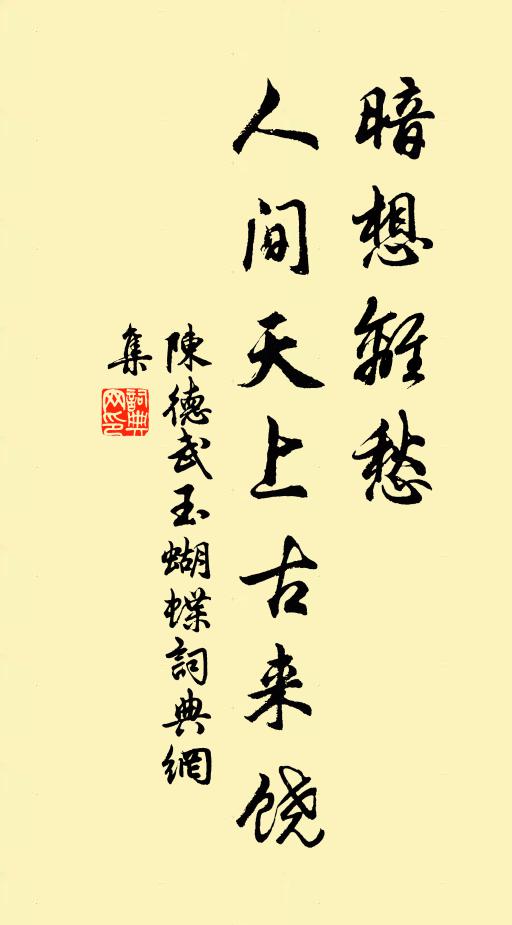 暗想離愁
人间天上古来饶
陳德武玉蝴蝶詞典網
集
詞典
网印